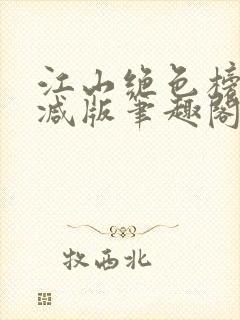 江山绝色榜
减版笔趣阁
牧西北